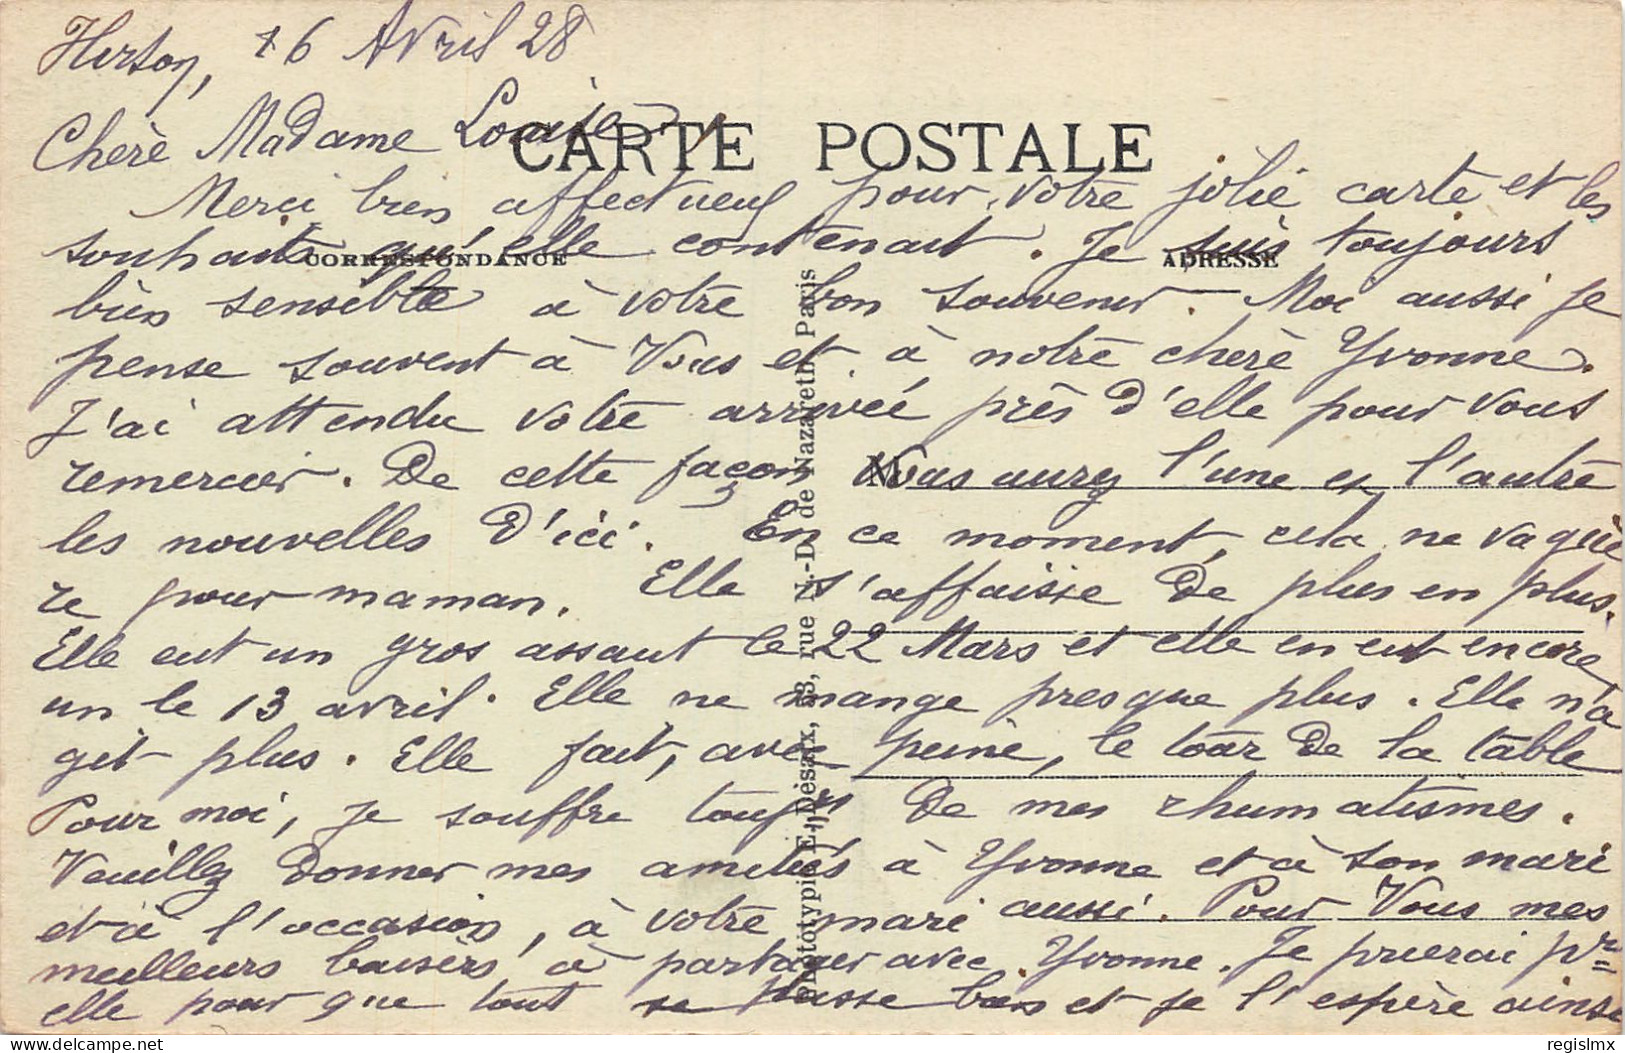 Hirson, 16 Avril 28
Chère Madame Louise,
CARTE POSTALE
Merci bien affectueux pour votre jolie carte et les
souhaits qu'elle contenait. Je suis toujours
CORRESPONDANCE
ADRESSE
bien sensible à votre bon souvenir. Moi aussi je
pense souvent à Vous et à notre chère Yvonne.
J'ai attendu votre arrivée près d'elle pour vous
remercier. De cette façon Vous aurez l'une et l'autre
M
les nouvelles d'ici. En ce moment, cela ne va guè
re pour maman. Elle s'affaisse de plus en plus.
Elle eut un gros assaut le 22 Mars et elle en eut encore
un le 13 avril. Elle ne mange presque plus. Elle n'a
git plus. Elle fait, avec peine, le tour de la table
Pour moi, je souffre toujrs de mes rhumatismes.
Veuillez donner mes amitiés à Yvonne et à son mari
et à l'occasion, à votre mari aussi. Pour Vous mes
meilleurs baisers à partager avec Yvonne. Je prierai pr
elle pour que tout se passe bien et je l'espère ainsi
Phototypie E. Désaix, 13, rue N.-D. de Nazareth, Paris
regislmx
delcampe.net